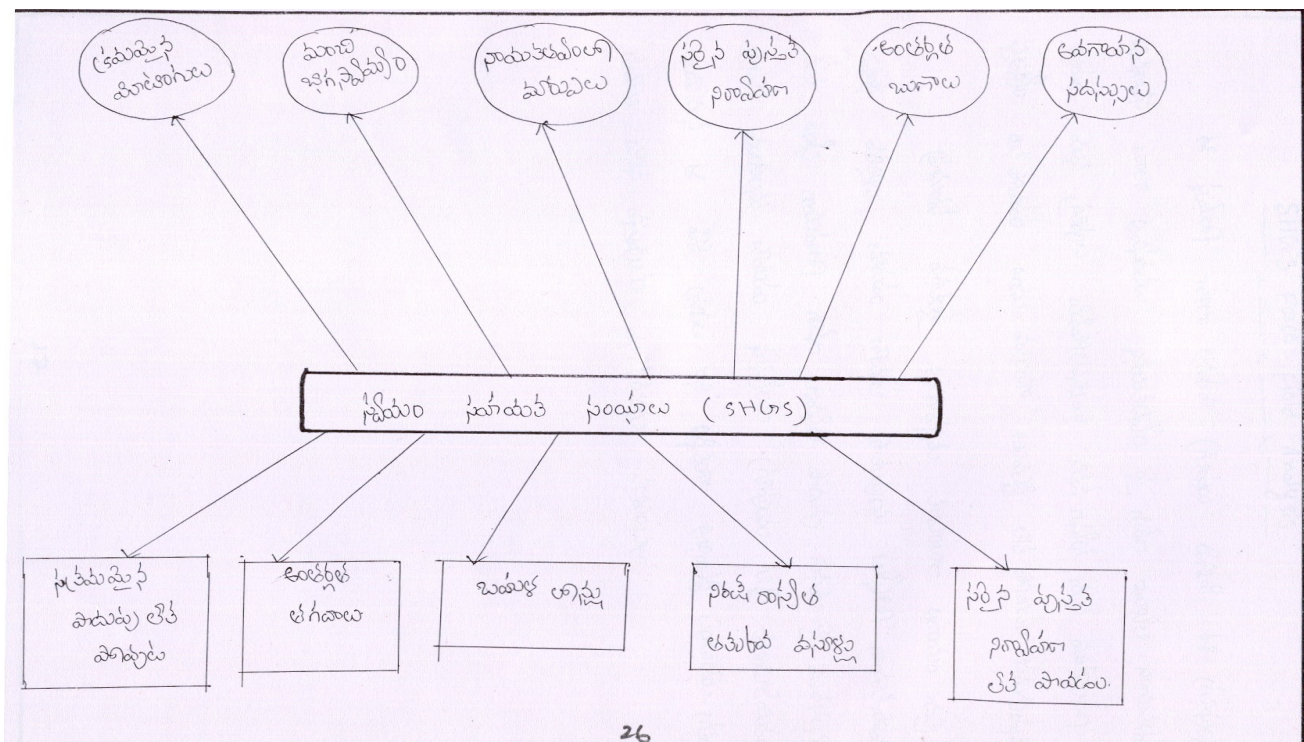 క్రమమైన
మీటింగులు
మంచి
భాగస్వామ్యం
నాయకత్వంలో
మార్పులు
సరైన పుస్తక
నిర్వాహణ
అంతర్గత
ఋణాలు
అవగాహన
సదస్సులు
స్వయం సహాయక సంఘాలు (SHGS)
సక్రమమైన
పొదుపు లేక
పోవుట
అంతర్గత
తగదాలు
బయట లోన్లు
నిరక్ష రాస్యత
తక్కువ వసూళ్లు
సరైన పుస్తక
నిర్వాహణ
లేక పోవడం.
26